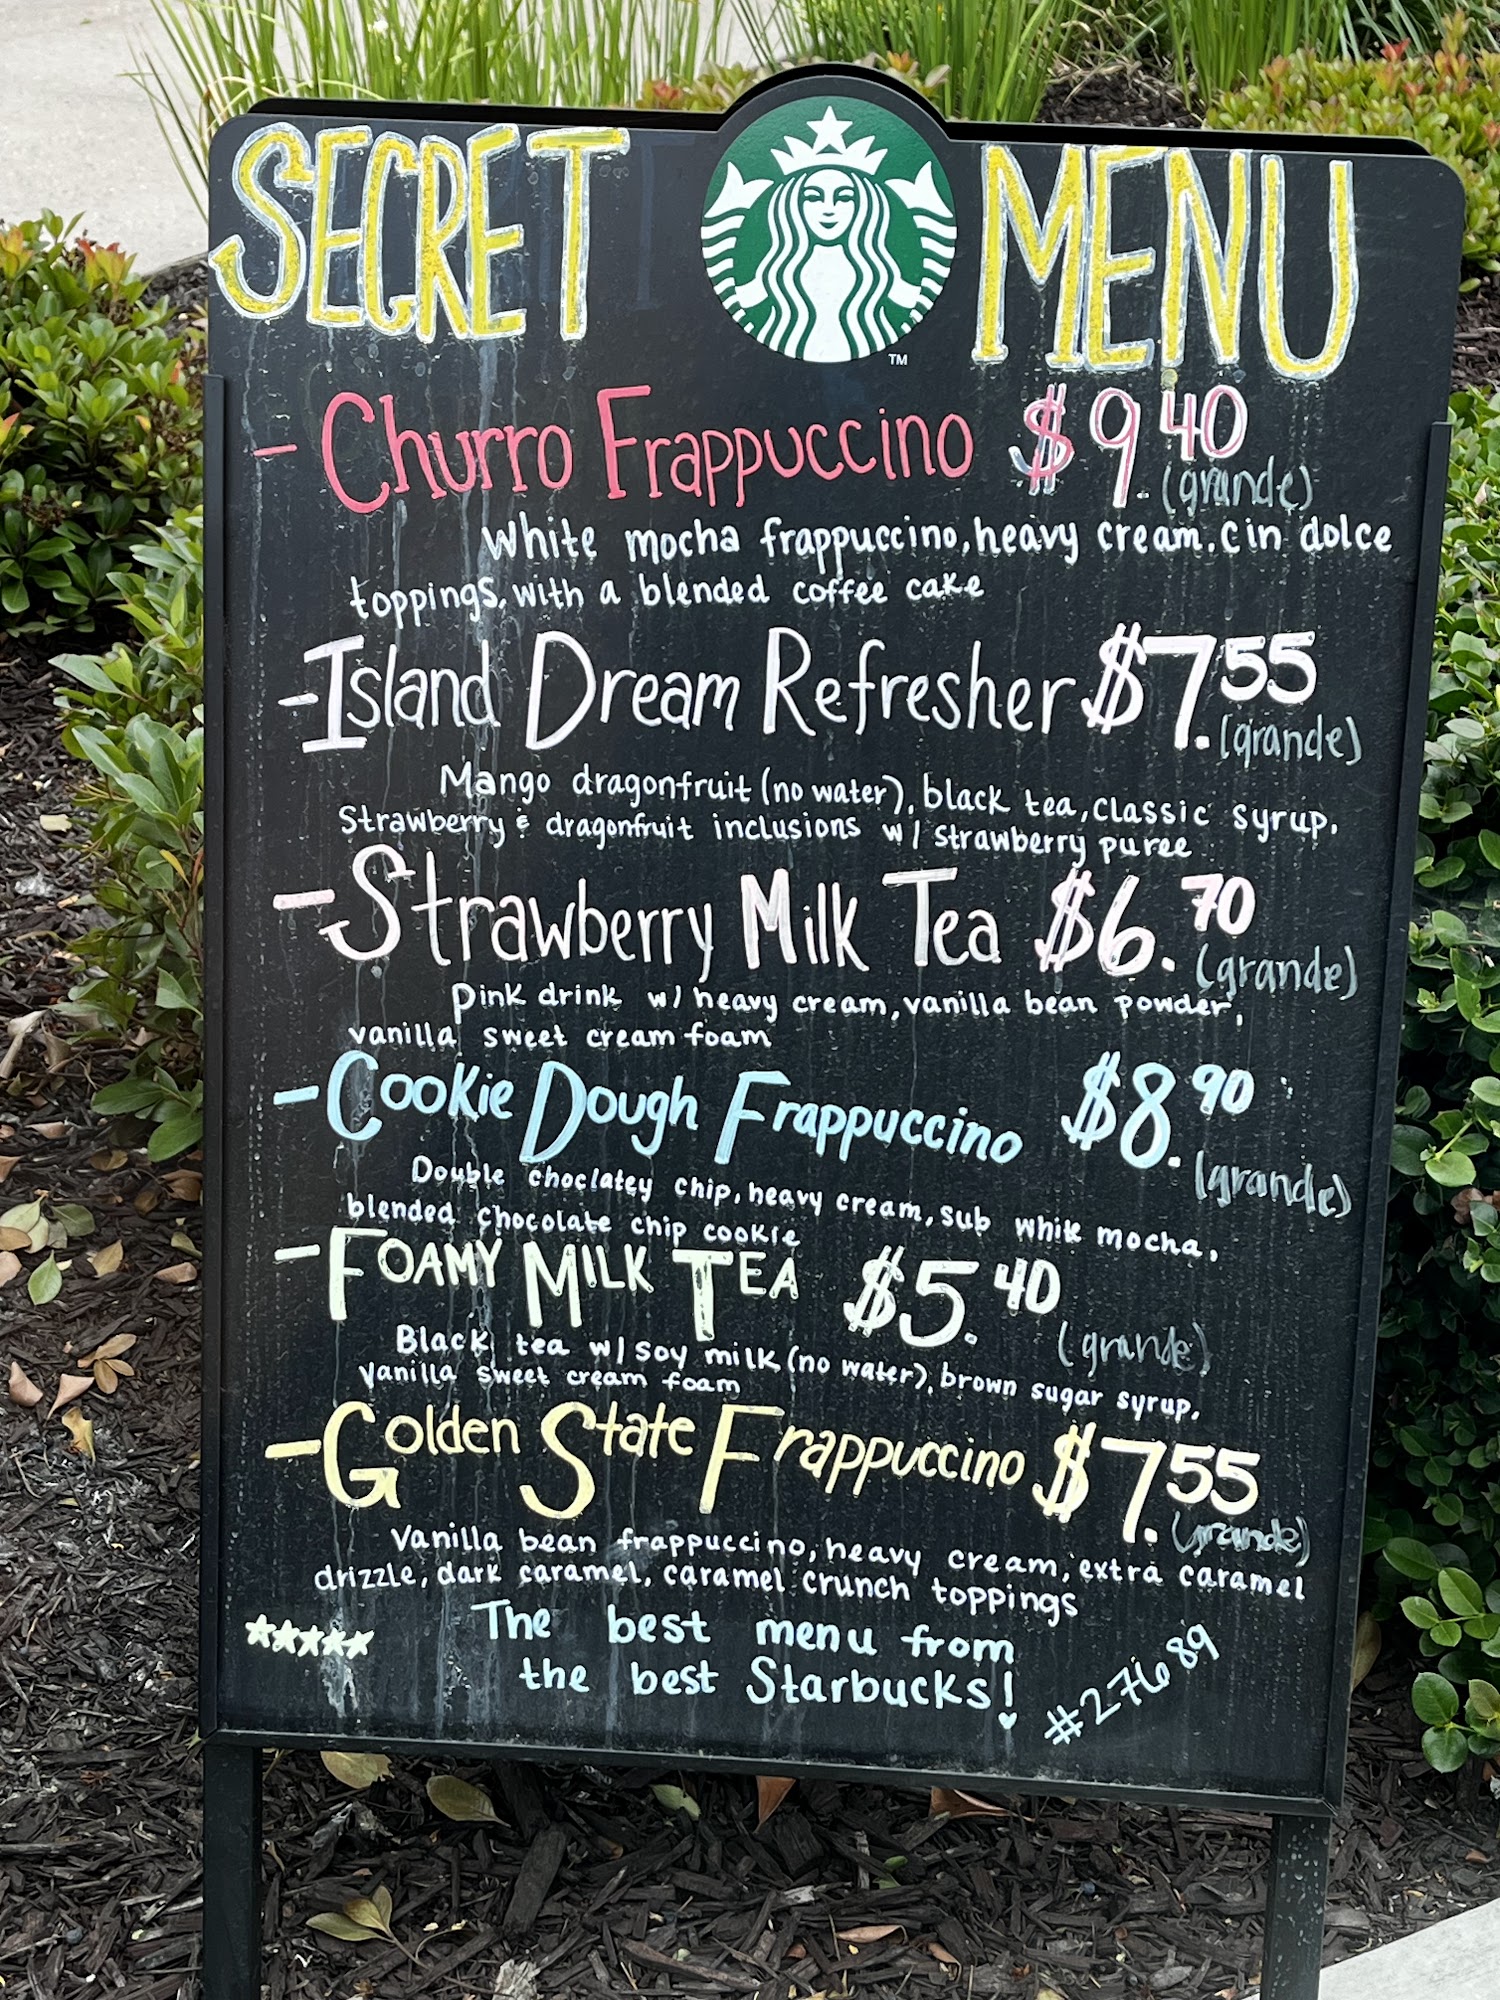 SECRET MENU
TM
- Churro Frappuccino $9.40 (grande)
White mocha frappuccino, heavy cream, cin dolce
toppings, with a blended coffee cake
- Island Dream Refresher $7.55 (grande)
Mango dragonfruit (no water), black tea, classic syrup,
Strawberry & dragonfruit inclusions w/ strawberry puree
- Strawberry Milk Tea $6.70 (grande)
Pink drink w/ heavy cream, vanilla bean powder,
vanilla sweet cream foam
- Cookie Dough Frappuccino $8.90 (grande)
Double choclatey chip, heavy cream, sub white mocha,
blended chocolate chip cookie
- FOAMY MILK TEA $5.40 (grande)
Black tea w/ soy milk (no water), brown sugar syrup,
vanilla sweet cream foam
- Golden State Frappuccino $7.55 (grande)
Vanilla bean frappuccino, heavy cream, extra caramel
drizzle, dark caramel, caramel crunch toppings
The best menu from
the best Starbucks!
#27689